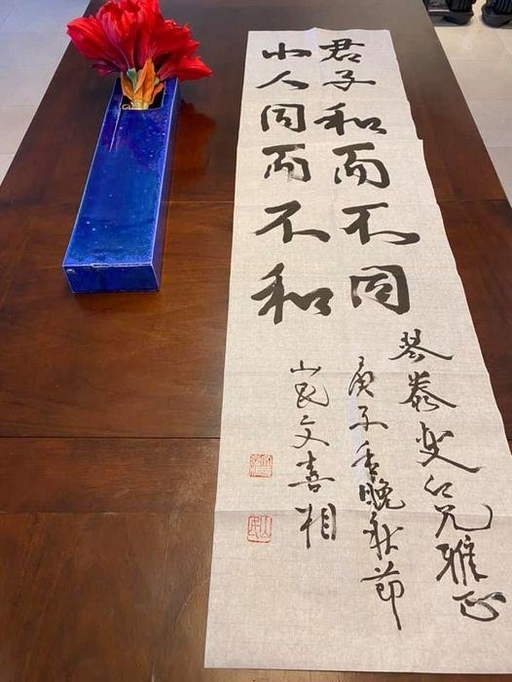 君子和而不同
小人同而不和
琴泰叟仁兄雅正
庚子年晚秋節
山民文喜相
山民